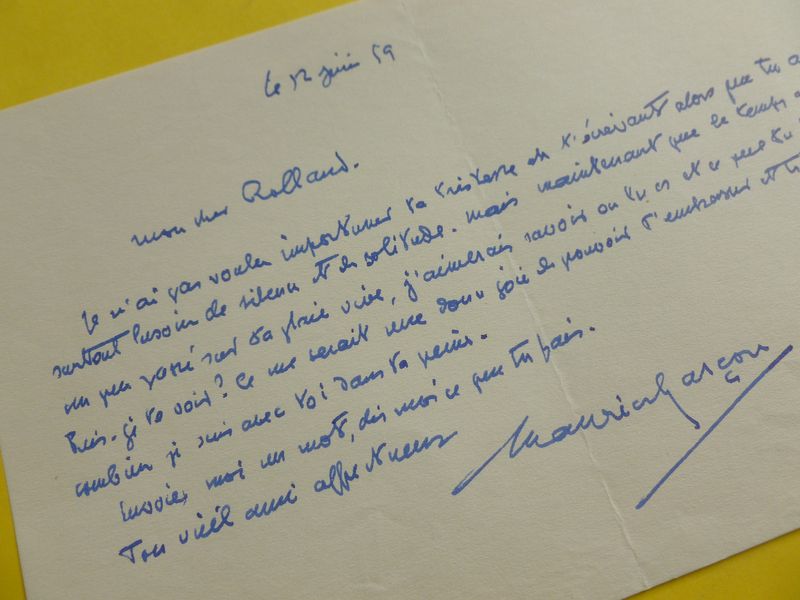 le 12 juin 59
mon cher Rolland.
Je n'ai pas voulu importuner ta tristesse en t'écrivant alors que tu a
surtout besoin de silence et de solitude. mais maintenant que le temps a
un peu passé sur ta plaie vive, j'aimerais savoir où tu es et ce que tu
Puis-je te voir? Ce me serait une douce joie de pouvoir t'embrasser et te
combien je suis avec toi dans ta peine.
Envoies moi un mot, dis moi ce que tu fais.
Ton vieil ami affectueux
Maurice Garçon